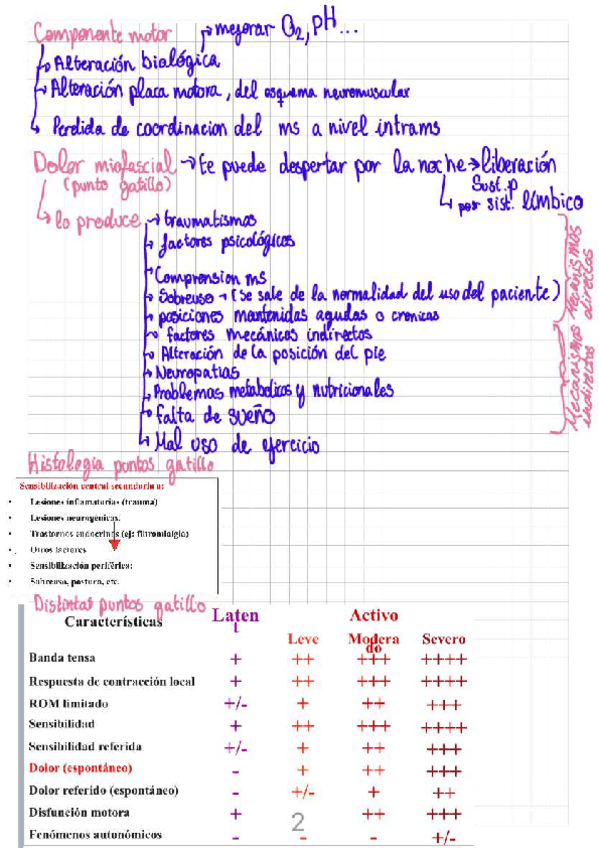 Componente motor → mejorar O2, pH...
Alteración biológica
Alteración placa motora, del esquema neuromuscular
Perdida de coordinacion del ms a nivel intrams
Dolor miofascial → te puede despertar por la noche → liberación
(punto gatillo)
Sust. P
por sist. límbico
lo produce → traumatismos
factores psicológicos
Comprension ms
Sobreuso → (se sale de la normalidad del uso del paciente)
posiciones mantenidas agudas o cronicas
factores mecánicos indirectos
Alteración de la posición del pie
Neuropatias
Problemas metabolicos y nutricionales
falta de sueño
Mal uso de ejercicio
Mecanismos directos
Mecanismos indirectos
Histología puntos gatillo
Sensibilización central secundaria a:
• Lesiones inflamatorias (trauma)
• Lesiones neurogénicas.
• Trastornos endocrinos (ej: fibromialgia)
• Otros factores
• Sensibilización periférica:
• Sobreuso, postura, etc.
Distintos puntos gatillo
Características Laten Activo
t
Leve Modera Severo
do
Banda tensa + ++ +++ ++++
Respuesta de contracción local + ++ +++ ++++
ROM limitado +/- + ++ +++
Sensibilidad + ++ +++ ++++
Sensibilidad referida +/- + ++ +++
Dolor (espontáneo) - + ++ +++
Dolor referido (espontáneo) - +/- + ++
Disfunción motora + ++ +++
2
Fenómenos autonómicos - - - +/-